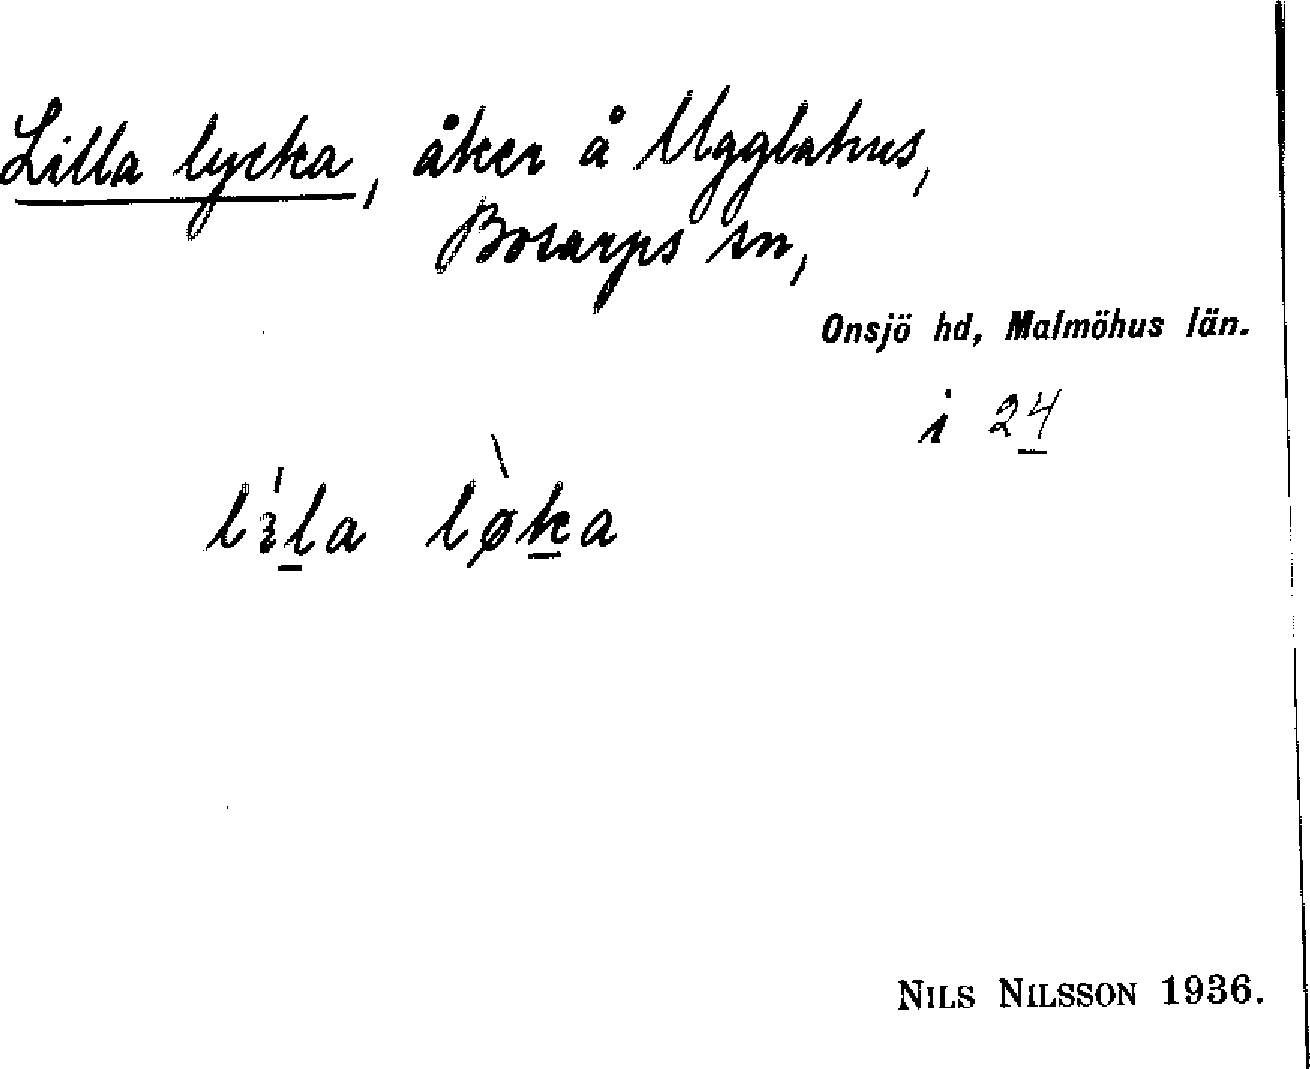 Lilla lycka, åker å Ugglahus,
Bosarps sn,
Onsjö hd, Malmöhus län.
i 24
lila løka
NILS NILSSON 1936.